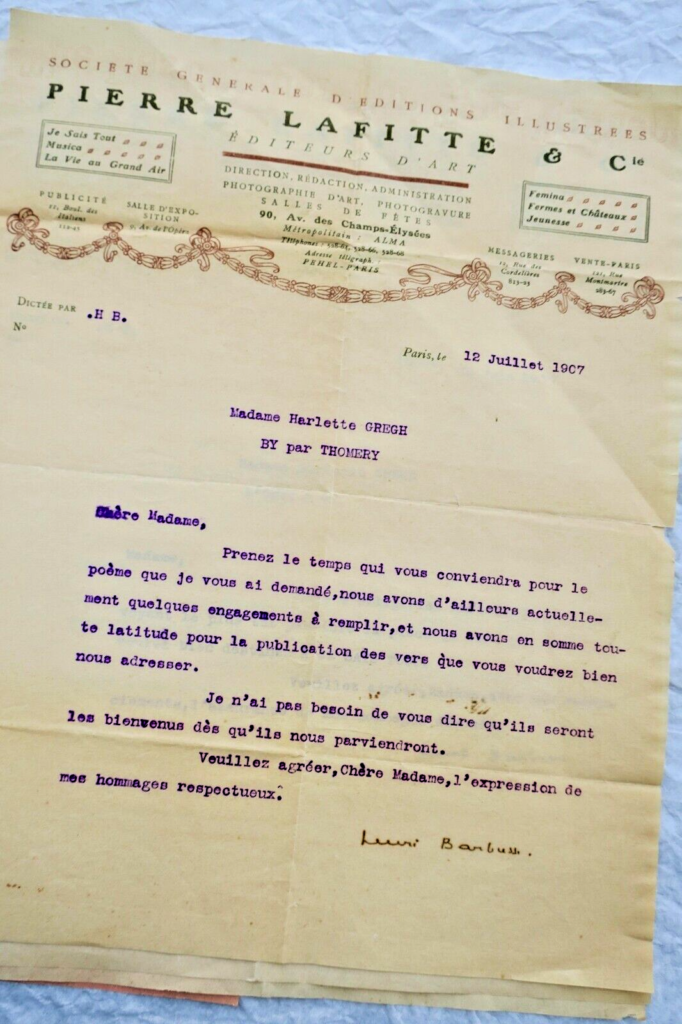 SOCIÉTÉ GÉNÉRALE D'ÉDITIONS ILLUSTRÉES
PIERRE LAFITTE & Cie
ÉDITEURS D'ART
Je Sais Tout
Musica
La Vie au Grand Air
DIRECTION, RÉDACTION, ADMINISTRATION
PHOTOGRAPHIE D'ART, PHOTOGRAVURE
SALLES DE FÊTES
90, Av. des Champs-Élysées
Métropolitain : ALMA
Téléphones : 528-66, 528-68
Adresse télégraph
PEHEL-PARIS
Femina
Fermes et Châteaux
Jeunesse
PUBLICITÉ
Boul. des
Italiens
SALLE D'EXPO-
SITION
9, Av. de l'Opéra
MESSAGERIES
Rue des
Cordelières
VENTE-PARIS
Rue
Montmartre
DICTÉE PAR .H B.
No
Paris, le 12 Juillet 1907
Madame Harlette GREGH
BY par THOMERY
Chère Madame,
Prenez le temps qui vous conviendra pour le
poème que je vous ai demandé,nous avons d'ailleurs actuelle-
ment quelques engagements à remplir,et nous avons en somme tou-
te latitude pour la publication des vers que vous voudrez bien
nous adresser.
Je n'ai pas besoin de vous dire qu'ils seront
les bienvenus dès qu'ils nous parviendront.
Veuillez agréer,Chère Madame,l'expression de
mes hommages respectueux.
Henri Barbusse.